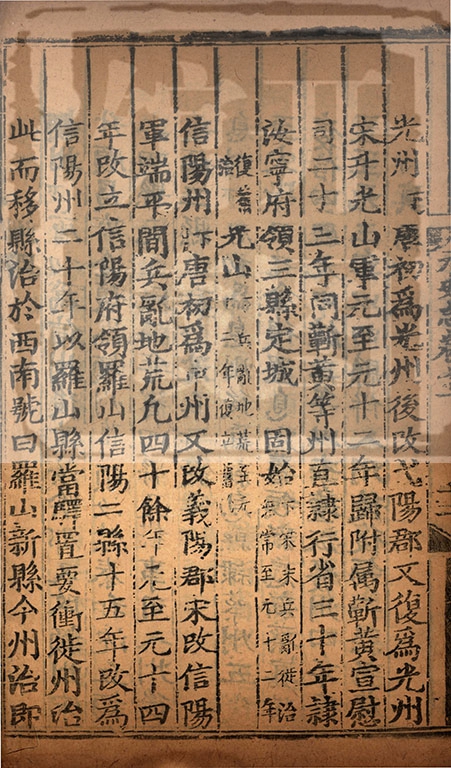 光州下唐初爲光州後改弋陽郡又復爲光州
宋升光山軍元至元十二年歸附属蘄黃宣慰
司二十三年同蘄黃等州直隷行省三十年隷
汝寧府領三縣定城 固始宋末兵亂徙治無常至元十二年
復舊治光山兵亂地荒至元十二年復立舊
信陽州下唐初爲申州又改義陽郡宋改信陽
軍端平間兵亂地荒九四十餘年元至元十四
年改立信陽府領羅山信陽二縣十五年改爲
信陽州二十年以羅山縣當驛置要衝徙州治
此而移縣治於西南號曰羅山新縣今州治即